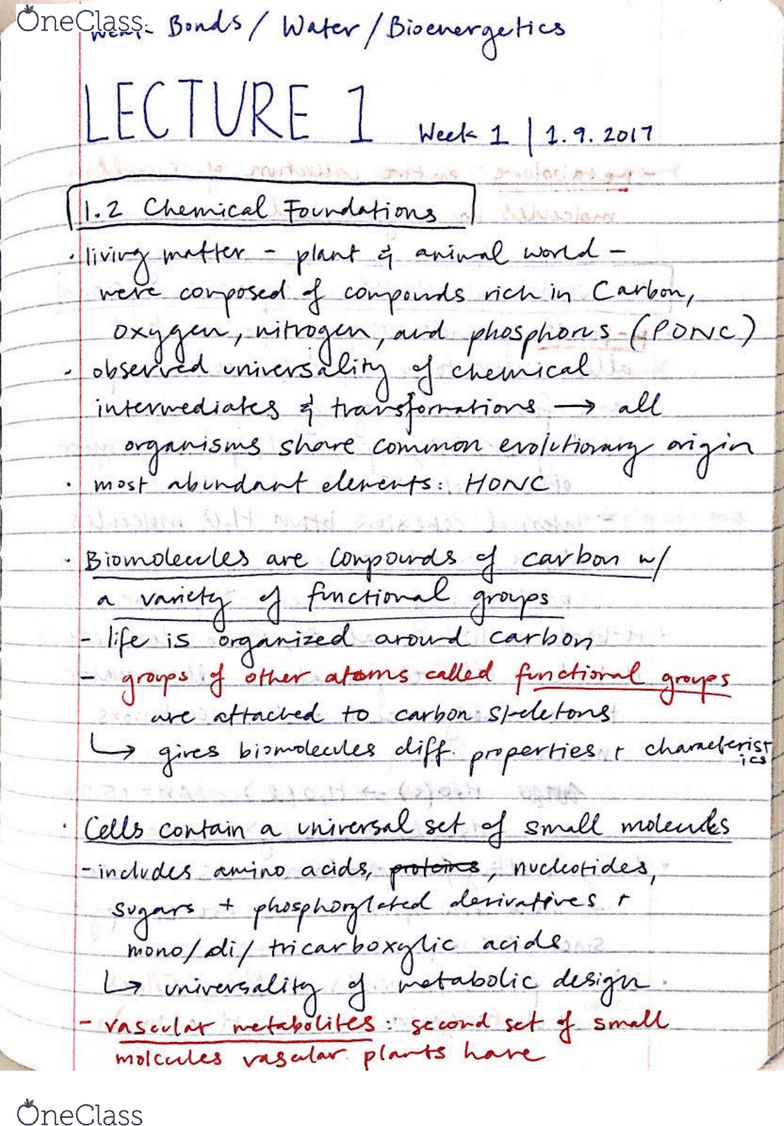 OneClass
Bonds / Water / Bioenergetics
LECTURE 1 Week 1 | 1.9.2017
1.2 Chemical Foundations
· living matter - plant & animal world -
were composed of compounds rich in Carbon,
oxygen, nitrogen, and phosphorus (PONC)
· observed universality of chemical
intermediates & transformations → all
organisms share common evolutionary origin
· most abundant elements: HONC
· Biomolecules are compounds of carbon w/
a variety of functional groups
- life is organized around carbon
- groups of other atoms called functional groups
are attached to carbon skeletons
↳ gives biomolecules diff. properties + characterist
ics
· Cells contain a universal set of small molecules
- includes amino acids, proteins, nucleotides,
sugars + phosphorylated derivatives +
mono/di/tricarboxylic acids
↳ universality of metabolic design.
- vascular metabolites: second set of small
molecules vascular plants have
OneClass